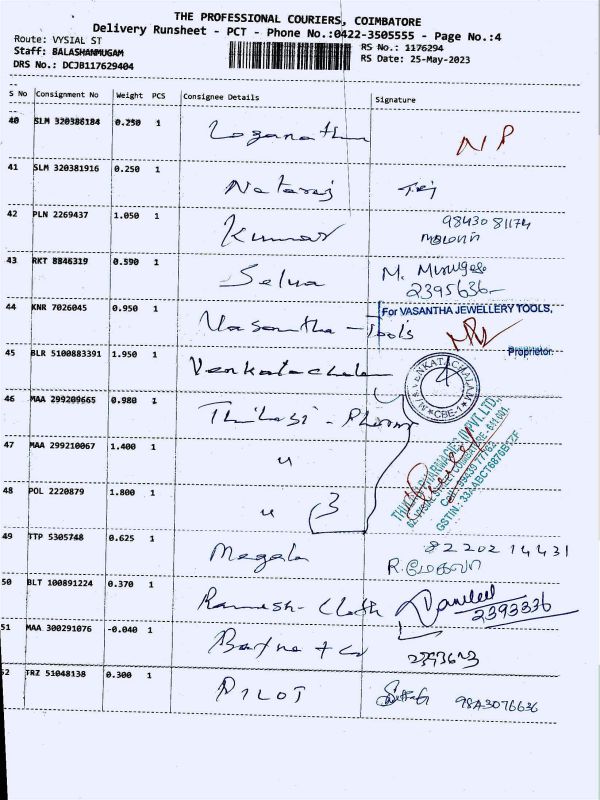 THE PROFESSIONAL COURIERS, COIMBATORE
Delivery Runsheet - PCT - Phone No.:0422-3505555 - Page No.:4
Route: VYSIAL ST
RS No.: 1176294
Staff: BALASHANMUGAM
RS Date: 25-May-2023
DRS No.: DCJB117629404
S No Consignment No Weight PCS Consignee Details Signature
40 SLM 320386184 0.250 1 Loganathan NP
41 SLM 320381916 0.250 1 Nataraj
42 PLN 2269437 1.050 1 Kumar 98430 81174
43 RKT 8846319 0.590 1 Selva M. Murugesh
2395636
44 KNR 7026045 0.950 1 Vasantha - Tools For VASANTHA JEWELLERY TOOLS,
Proprietor.
45 BLR 5100883391 1.950 1 Venkatachalam VENKATACHALAM CBE-1
46 MAA 299209665 0.980 1 Thilagi - Pharma
47 MAA 299210067 1.400 1 "
48 POL 2220879 1.800 1 " 3
GSTIN : 33AABCT6876B1ZF
49 TTP 5305748 0.625 1 Megala 82202 14431
R. மேகலா
50 BLT 100891224 0.370 1 Ramesh - Cloth 2393336
51 MAA 300291076 -0.040 1
52 TRZ 51048138 0.300 1 PILOT 9843076636